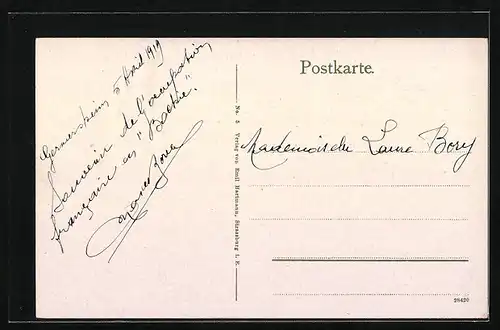 Germersheim 5 Avril 1919
Souvenir de l'occupation
française en "Bochie".
Postkarte.
Mademoiselle Laure Bory
No. 5 Verlag von Emil Hartmann, Strassburg i. E.
29420